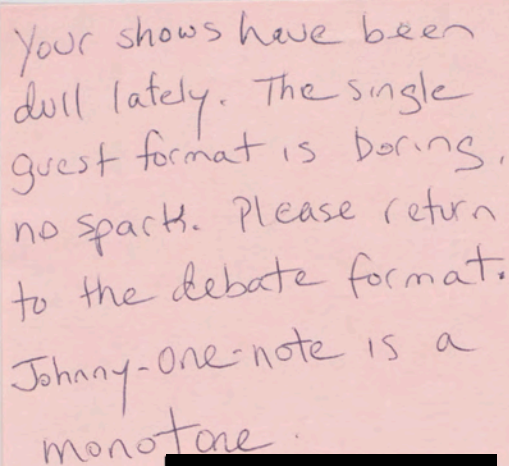 Your shows have been
dull lately. The single
guest format is boring,
no spark. Please return
to the debate format.
Johnny-one-note is a
monotone.